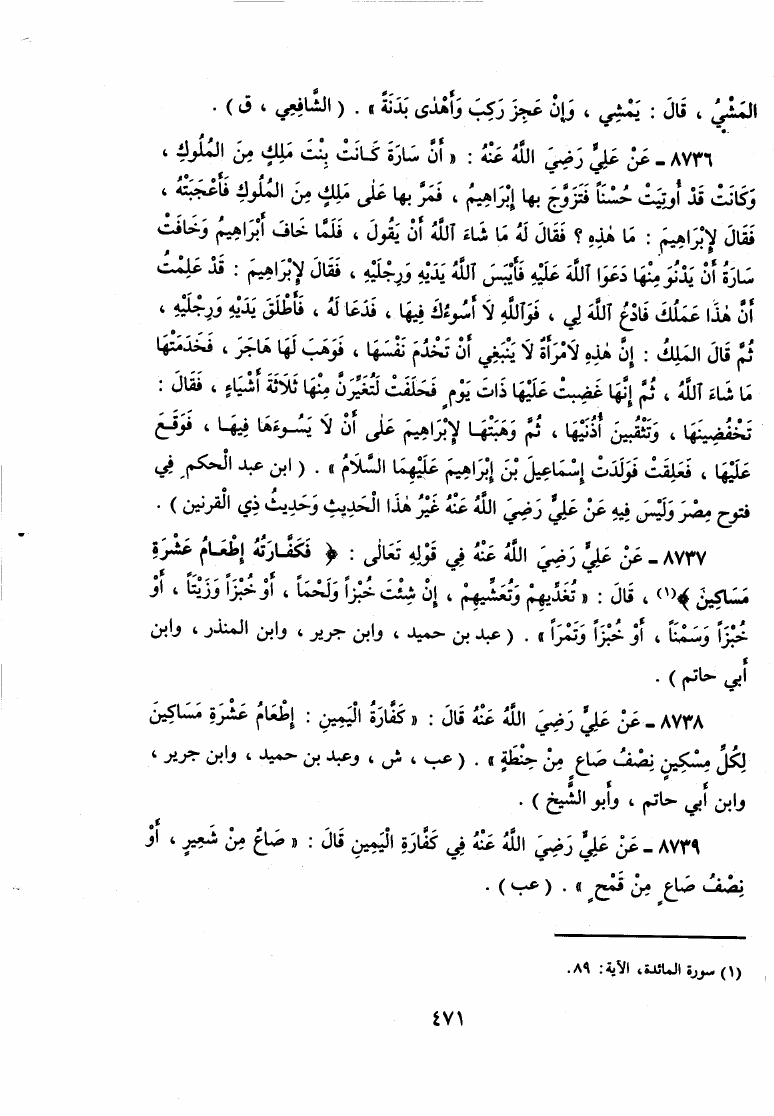 المَشْيُ ، قَالَ : يَمْشِي ، وَإِنْ عَجِزَ رَكِبَ وَأَهْدٰى بَدَنَةً » . ( الشَّافِعِي ، ق ) .
٨٧٣٦ - عَنْ عَلِيٍّ رَضِيَ اللَّهُ عَنْهُ : « أَنَّ سَارَةَ كَانَتْ بِنْتَ مَلِكٍ مِنَ المُلُوكِ ،
وَكَانَتْ قَدْ أُوتِيَتْ حُسْنَاً فَتَزَوَّجَ بها إِبْرَاهِيمُ ، فَمَرَّ بها عَلٰى مَلِكٍ مِنَ المُلُوكِ فَأَعْجَبَتْهُ ،
فَقَالَ لإِبْرَاهِيمَ : مَا هٰذِهِ ؟ فَقَالَ لَهُ مَا شَاءَ ٱللَّهُ أَنْ يَقُولَ ، فَلَمَّا خَافَ أَبْرَاهِيمُ وَخَافَتْ
سَارَةُ أَنْ يَدْنُوَ مِنْهَا دَعَوَا ٱللَّهَ عَلَيْهِ فَأَيْبَسَ ٱللَّهُ يَدَيْهِ وَرِجْلَيْهِ ، فَقَالَ لإِبْرَاهِيمَ : قَدْ عَلِمْتُ
أَنَّ هٰذَا عَمَلُكَ فَادْعُ ٱللَّهَ لِي ، فَوَٱللَّهِ لَا أَسُوءُكَ فِيهَا ، فَدَعَا لَهُ ، فَأَطْلَقَ يَدَيْهِ وَرِجْلَيْهِ ،
ثُمَّ قَالَ المَلِكُ : إِنَّ هٰذِهِ لَامْرَأَةٌ لَا يَنْبَغِي أَنْ تَخْدُمَ نَفْسَهَا ، فَوَهَبَ لَهَا هَاجَرَ ، فَخَدَمَتْهَا
مَا شَاءَ ٱللَّهُ ، ثُمَّ إِنَّهَا غَضِبَتْ عَلَيْهَا ذَاتَ يَوْمٍ فَحَلَفَتْ لَتُغَيِّرَنَّ مِنْهَا ثَلَاثَةَ أَشْيَاءٍ ، فَقَالَ :
تَخْفُضِينَهَا ، وَتَثْقُبِينَ أُذُنَيْهَا ، ثُمَّ وَهَبَتْهَا لإِبْرَاهِيمَ عَلٰى أَنْ لَا يَسُوءَهَا فِيهَا ، فَوَقَعَ
عَلَيْهَا ، فَعَلِقَتْ فَوَلَدَتْ إِسْمَاعِيلَ بْنَ إِبْرَاهِيمَ عَلَيْهِمَا السَّلَامُ » . ( ابن عبد الْحكم في
فتوح مِصْرَ وَلَيْسَ فِيهِ عَنْ عَلِيٍّ رَضِيَ اللَّهُ عَنْهُ غَيْرُ هٰذَا الْحَدِيثِ وَحَدِيثُ ذِي الْقَرنين ) .
٨٧٣٧ - عَنْ عَلِيٍّ رَضِيَ اللَّهُ عَنْهُ فِي قَوْلِهِ تَعَالٰى : ﴿ فَكَفَّارَتُهُ إِطْعَامُ عَشْرَةِ
مَسَاكِينَ ﴾(١) ، قَالَ : « تُغَدِّيهِمْ وَتُعَشِّيهِمْ ، إِنْ شِئْتَ خُبْزاً وَلَحْمَاً ، أَوْ خُبْزَاً وَزَيْتَاً ، أَوْ
خُبْزَاً وَسَمْنَاً ، أَوْ خُبْزَاً وَتَمْرَاً » . ( عبد بن حميد ، وابن جرير ، وابن المنذر ، وابن
أبي حاتم ) .
٨٧٣٨ - عَنْ عَلِيٍّ رَضِيَ اللَّهُ عَنْهُ قَالَ : « كَفَّارَةُ الْيَمِينِ : إِطْعَامُ عَشْرَةِ مَسَاكِينَ
لِكُلِّ مِسْكِينٍ نِصْفُ صَاعٍ مِنْ حِنْطَةٍ » . ( عب ، ش ، وعبد بن حميد ، وابن جرير ،
وابن أبي حاتم ، وأبو الشَّيخ ) .
٨٧٣٩ - عَنْ عَلِيٍّ رَضِيَ اللَّهُ عَنْهُ فِي كَفَّارَةِ الْيَمِينِ قَالَ : « صَاعٌ مِنْ شَعِيرٍ ، أَوْ
نِصْفُ صَاعٍ مِنْ قَمْحٍ » . ( عب ) .
(١) سورة المائدة، الآية: ٨٩.
٤٧١